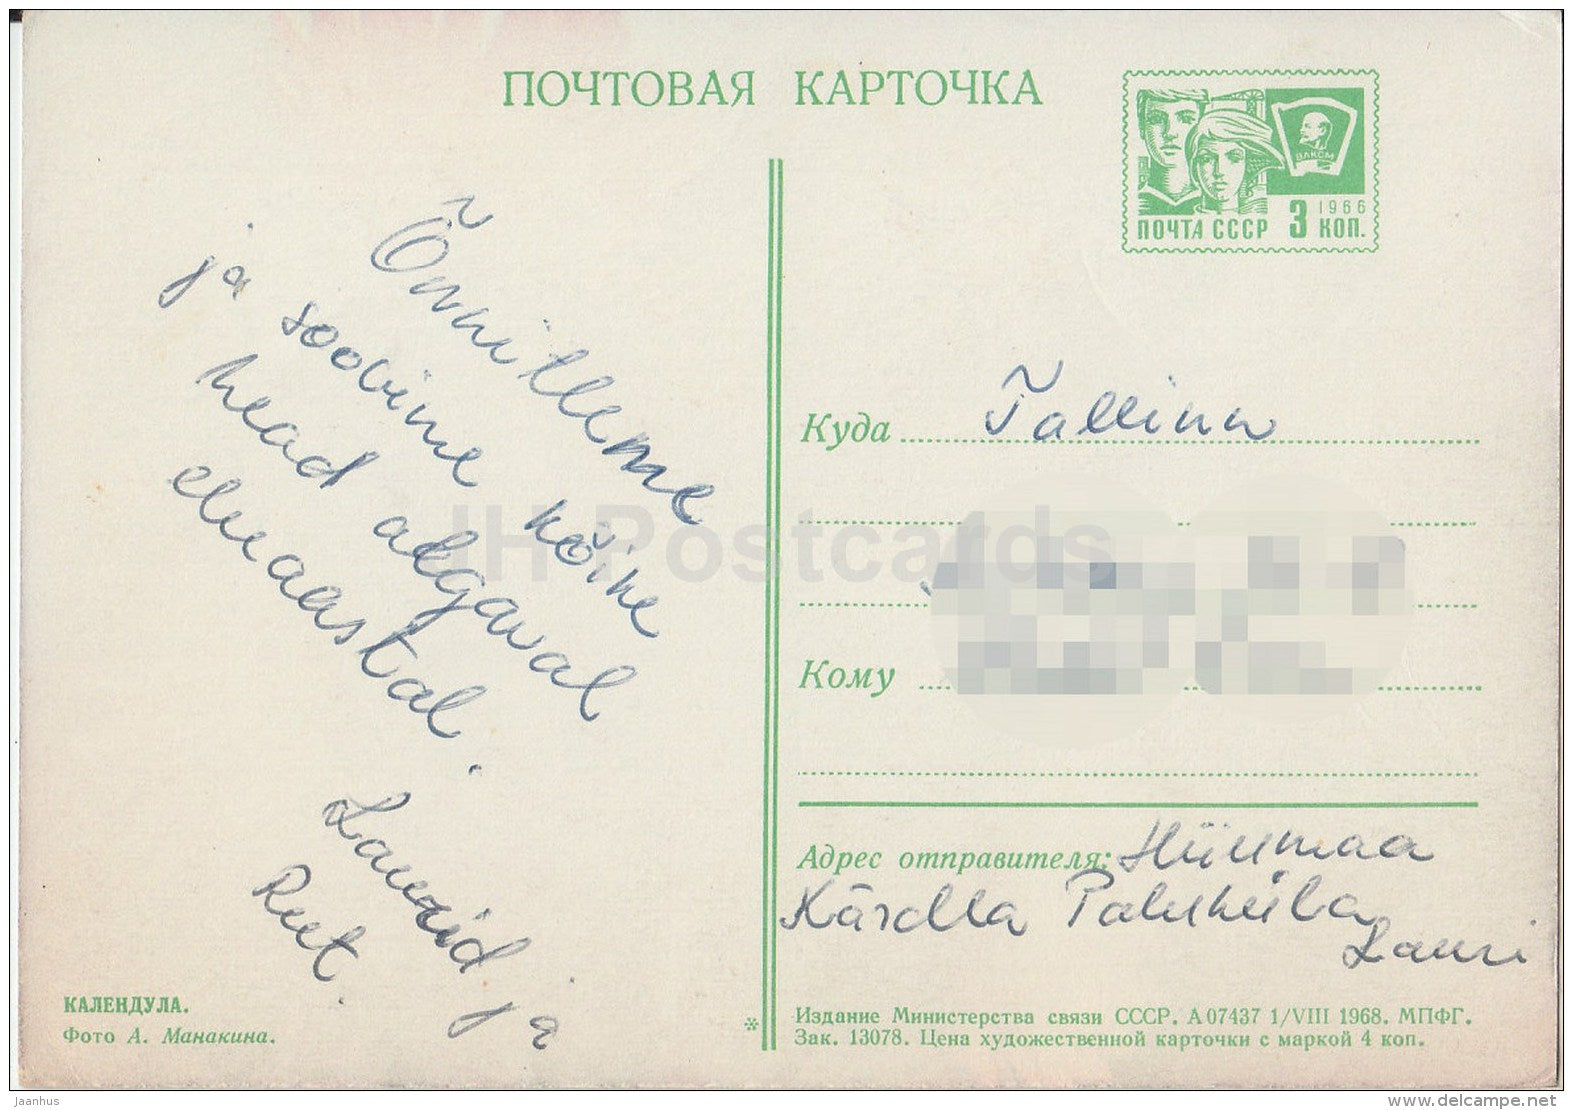 ПОЧТОВАЯ КАРТОЧКА
ВЛКСМ
1966
ПОЧТА СССР 3 КОП.
Õnnitleme
ja soovime kõike
head algaval
eluaastal.
Laurid ja
Reet.
Куда Tallinn
Кому
Адрес отправителя: Hiiumaa
Kärdla Paluküla
Lauri
КАЛЕНДУЛА.
Фото А. Манакина.
*
Издание Министерства связи СССР. А 07437 1/VIII 1968. МПФГ.
Зак. 13078. Цена художественной карточки с маркой 4 коп.
IH Postcards
Jaanhus
www.delcampe.net